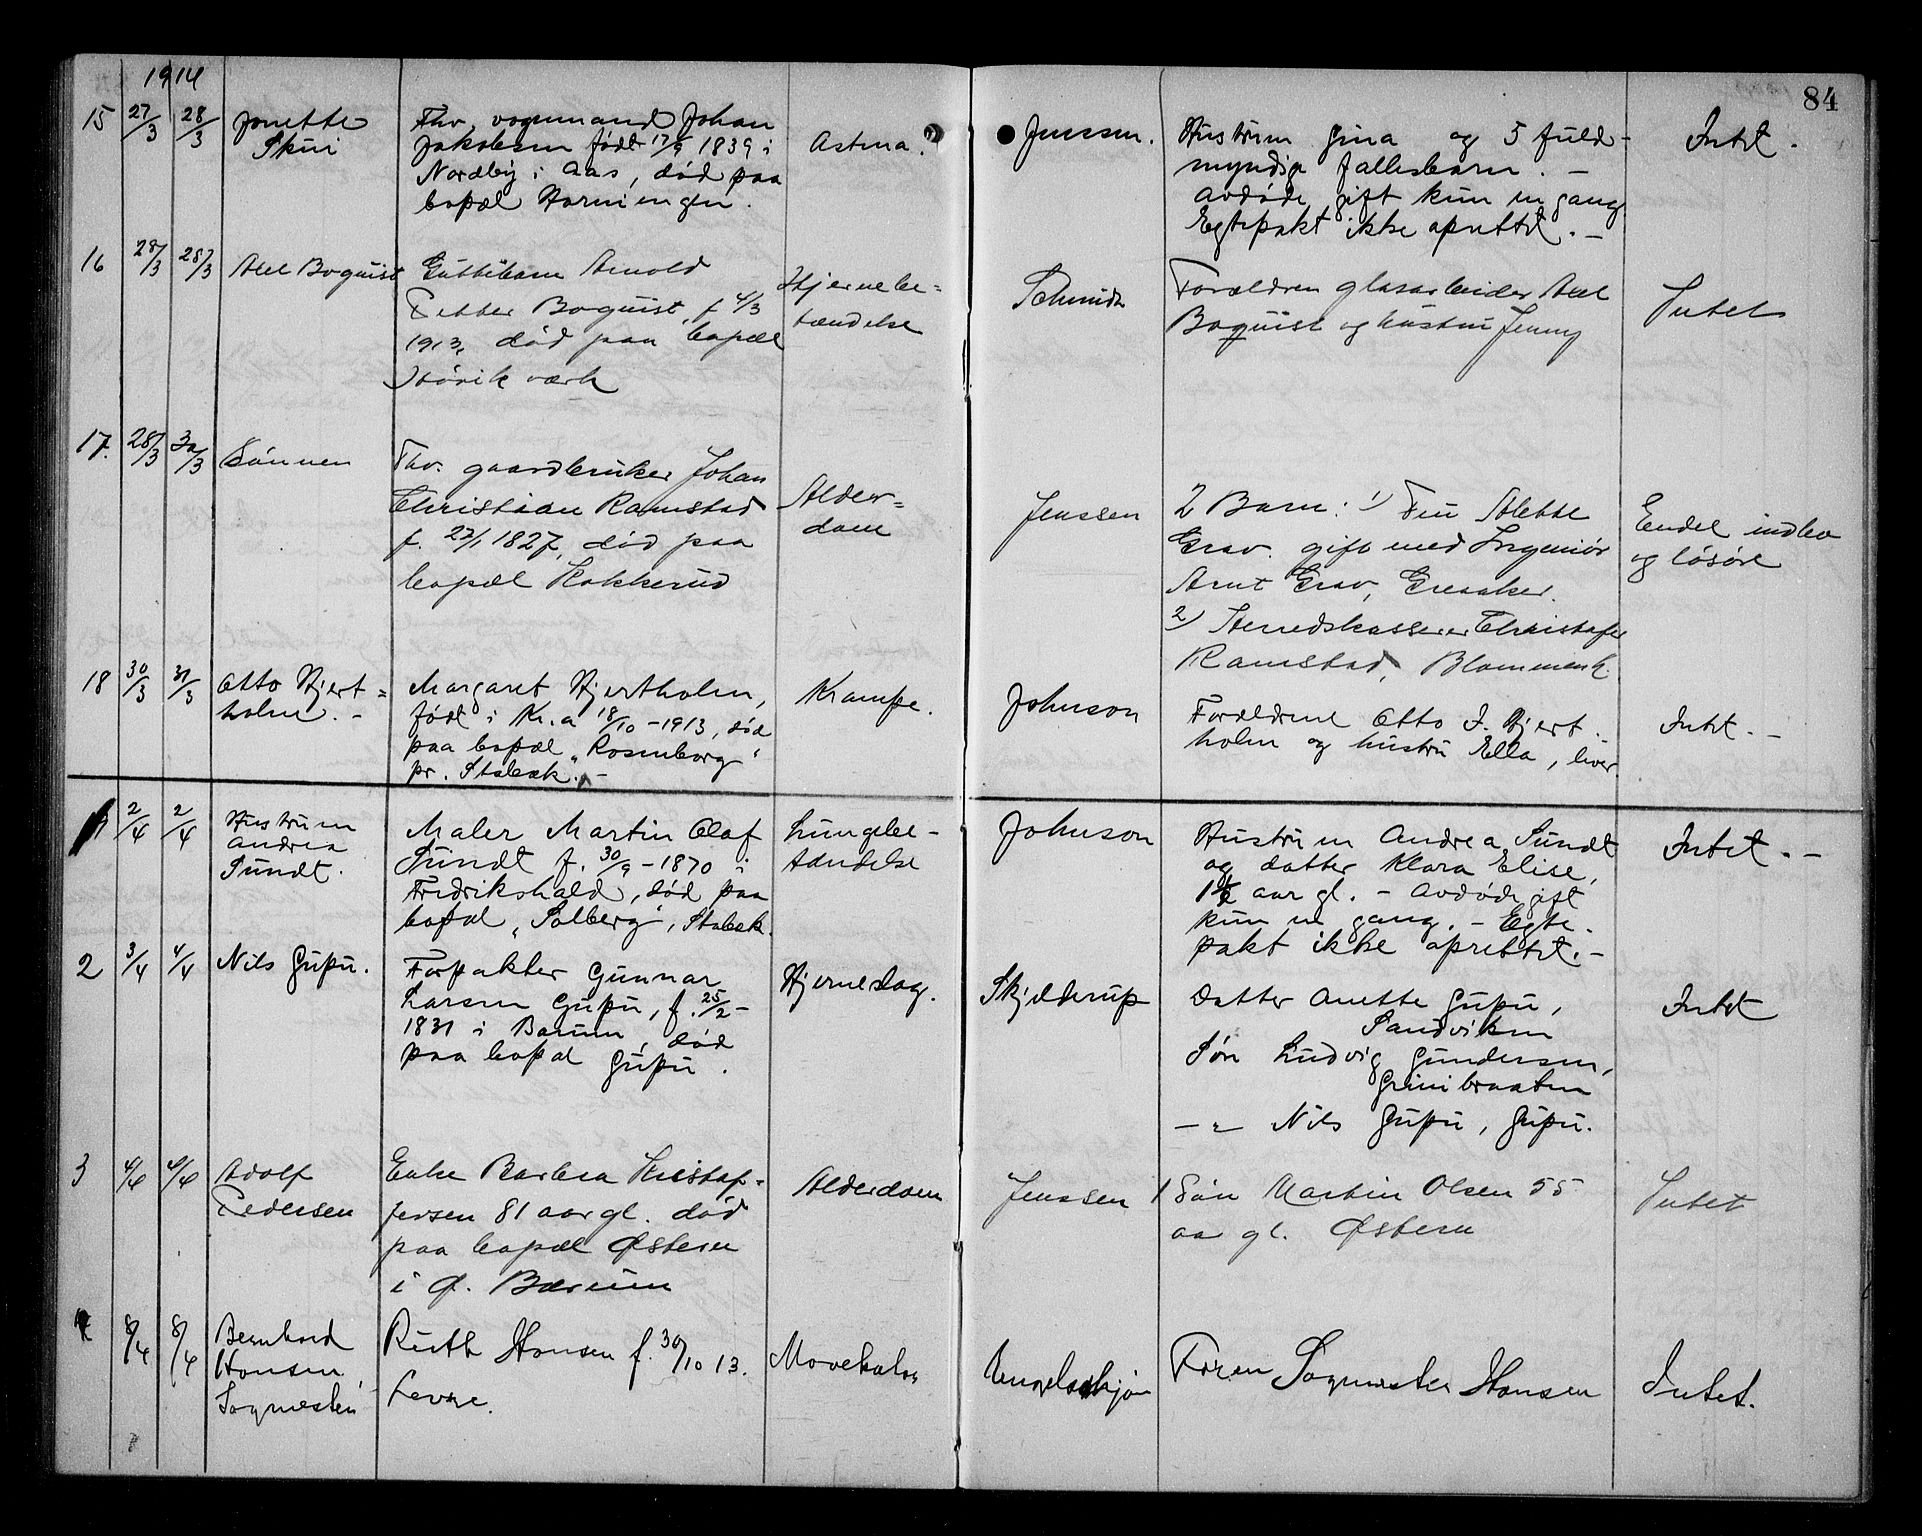 1914
84
15 27/3 28/3 Jonette
Skui
Fhv. vognmand Johan
Jakobsen født 17/9 1839 i
Nordby i Aas, død paa
bopæl Horniengen.
Astma.
Jenssen.
Hustruen Gina og 5 fuld-
myndige fællesbarn. -
Avdøde gift kun en gang
Egtepakt ikke oprettet. -
Intet.
16 28/3 28/3 Axel Boquist
Guttebarn Arnold
Petter Boquist, f 4/3
1913, død paa bopæl
Støvik værk
Hjernebe=
tændelse
Schmidt
Forældren glasarbeider Axel
Boquist og hustru Jenny
Intet
17. 28/3 30/3 Sønnen
Fhv. gaardbruker Johan
Christian Ramstad
f. 27/1 1827, død paa
bopæl Kokkerud
Alder=
dom
Jenssen
2 Barn: 1) Fru Alette
Grav gift med Ingeniør
Arnt Grav, Greaaker.
2) Herredskasserer Christofer
Ramstad, Blommenh.
Endel indbo
og løsøre
18 30/3 31/3 Otto Hjert=
holm. -
Margaret Hjertholm,
født i Kr.a 18/10-1913, død
paa bopæl "Rosenborg"
pr. Stabæk. -
Krampe.
Johnson
Forældrene Otto J. Hjert
holm og hustru Ella, lever
Intet. -
1 2/4 2/4 Hustruen
Andrea
Sundt.
Maler Martin Olaf
Sundt f. 30/9-1870 i
Fredrikshald, død paa
bopæl "Solberg", Stabæk.
Lungebe-
tændelse
Johnson
Hustruen Andrea Sundt
og datter Klara Elise,
1½ aar gl. - Avdøde gift
kun en gang. - Egte-
pakt ikke oprettet. -
Intet. -
2 3/4 4/4 Nils Gupu.
Forpakter Gunnar
Larsen Gupu, f. 25/2-
1831 i Bærum, død
paa bopæl Gupu.
Hjerneslag.
Skjelderup
Datter Anette Gupu,
Sandviken
Søn Ludvig Gundersen,
Grinibraaten
-"- Nils Gupu, Gupu.
Intet
3 4/4 4/4 Adolf
Pedersen
Enke Barbra Kristof=
fersen 81 aar gl. død
paa bopæl Østern
i Ø. Bærum
Alderdom
Jenssen
1 Søn Martin Olsen 55
aa gl. Østern
Intet
4 8/4 8/4 Bernhard
Hansen
Sagmester
Ruth Hansen f. 30/10 13.
Levre.
Mavekatar
Engelschjøn
Faren Sagmester Hansen
Intet.